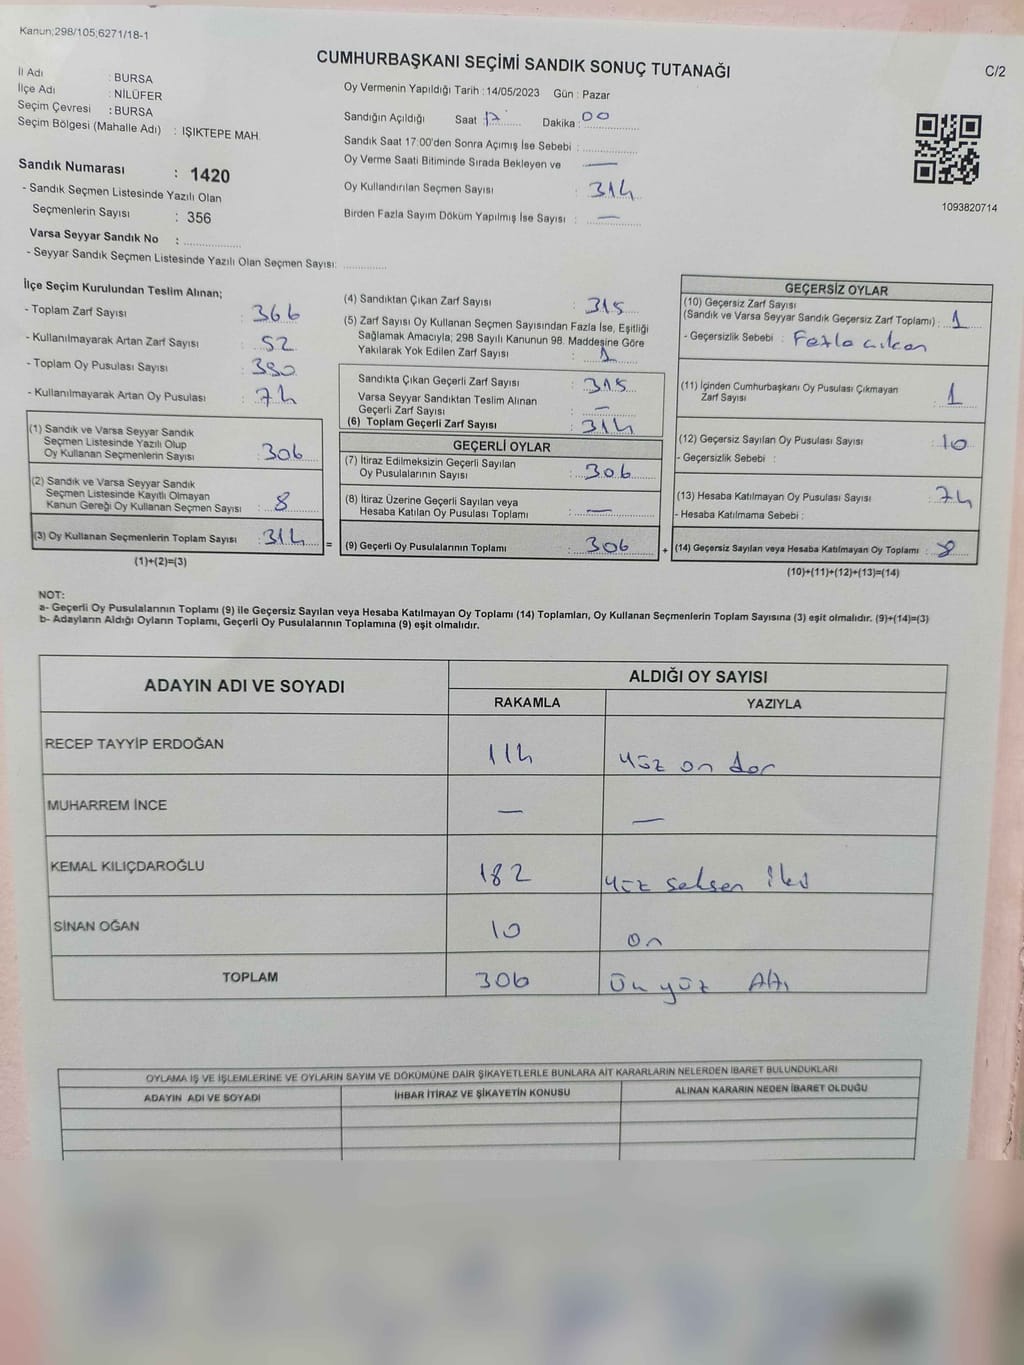 Kanun;298/105;6271/18-1
CUMHURBAŞKANI SEÇİMİ SANDIK SONUÇ TUTANAĞI
C/2
İl Adı : BURSA
İlçe Adı : NİLÜFER
Seçim Çevresi : BURSA
Seçim Bölgesi (Mahalle Adı) : IŞIKTEPE MAH.
Sandık Numarası : 1420
- Sandık Seçmen Listesinde Yazılı Olan
Seçmenlerin Sayısı : 356
Varsa Seyyar Sandık No : ................
- Seyyar Sandık Seçmen Listesinde Yazılı Olan Seçmen Sayısı: ............
Oy Vermenin Yapıldığı Tarih : 14/05/2023 Gün : Pazar
Sandığın Açıldığı Saat : 17 Dakika : 00
Sandık Saat 17:00'den Sonra Açımış İse Sebebi : ................
Oy Verme Saati Bitiminde Sırada Bekleyen ve : —
Oy Kullandırılan Seçmen Sayısı : 314
Birden Fazla Sayım Döküm Yapılmış İse Sayısı : —
1093820714
İlçe Seçim Kurulundan Teslim Alınan;
- Toplam Zarf Sayısı : 366
- Kullanılmayarak Artan Zarf Sayısı : 52
- Toplam Oy Pusulası Sayısı : 380
- Kullanılmayarak Artan Oy Pusulası : 74
(1) Sandık ve Varsa Seyyar Sandık
Seçmen Listesinde Yazılı Olup
Oy Kullanan Seçmenlerin Sayısı : 306
(2) Sandık ve Varsa Seyyar Sandık
Seçmen Listesinde Kayıtlı Olmayan
Kanun Gereği Oy Kullanan Seçmen Sayısı : 8
(3) Oy Kullanan Seçmenlerin Toplam Sayısı : 314
(1)+(2)=(3)
=
(4) Sandıktan Çıkan Zarf Sayısı : 315
(5) Zarf Sayısı Oy Kullanan Seçmen Sayısından Fazla İse, Eşitliği
Sağlamak Amacıyla; 298 Sayılı Kanunun 98. Maddesine Göre
Yakılarak Yok Edilen Zarf Sayısı : 1
Sandıkta Çıkan Geçerli Zarf Sayısı : 315
Varsa Seyyar Sandıktan Teslim Alınan
Geçerli Zarf Sayısı : —
(6) Toplam Geçerli Zarf Sayısı : 314
GEÇERLİ OYLAR
(7) İtiraz Edilmeksizin Geçerli Sayılan
Oy Pusulalarının Sayısı : 306
(8) İtiraz Üzerine Geçerli Sayılan veya
Hesaba Katılan Oy Pusulası Toplamı : —
(9) Geçerli Oy Pusulalarının Toplamı : 306
+
GEÇERSİZ OYLAR
(10) Geçersiz Zarf Sayısı
(Sandık ve Varsa Seyyar Sandık Geçersiz Zarf Toplamı) : 1
- Geçersizlik Sebebi : Fazla çıkan
(11) İçinden Cumhurbaşkanı Oy Pusulası Çıkmayan
Zarf Sayısı : 1
(12) Geçersiz Sayılan Oy Pusulası Sayısı : 10
- Geçersizlik Sebebi :
(13) Hesaba Katılmayan Oy Pusulası Sayısı : 74
- Hesaba Katılmama Sebebi :
(14) Geçersiz Sayılan veya Hesaba Katılmayan Oy Toplamı : 8
(10)+(11)+(12)+(13)=(14)
NOT:
a- Geçerli Oy Pusulalarının Toplamı (9) ile Geçersiz Sayılan veya Hesaba Katılmayan Oy Toplamı (14) Toplamları, Oy Kullanan Seçmenlerin Toplam Sayısına (3) eşit olmalıdır. (9)+(14)=(3)
b- Adayların Aldığı Oyların Toplamı, Geçerli Oy Pusulalarının Toplamına (9) eşit olmalıdır.
ADAYIN ADI VE SOYADI
ALDIĞI OY SAYISI
RAKAMLA YAZIYLA
RECEP TAYYİP ERDOĞAN 114 yüz on dör
MUHARREM İNCE — —
KEMAL KILIÇDAROĞLU 182 yüz seksen iki
SİNAN OĞAN 10 on
TOPLAM 306 Üç yüz Altı
OYLAMA İŞ VE İŞLEMLERİNE VE OYLARIN SAYIM VE DÖKÜMÜNE DAİR ŞİKAYETLERLE BUNLARA AİT KARARLARIN NELERDEN İBARET BULUNDUKLARI
ADAYIN ADI VE SOYADI İHBAR İTİRAZ VE ŞİKAYETİN KONUSU ALINAN KARARIN NEDEN İBARET OLDUĞU